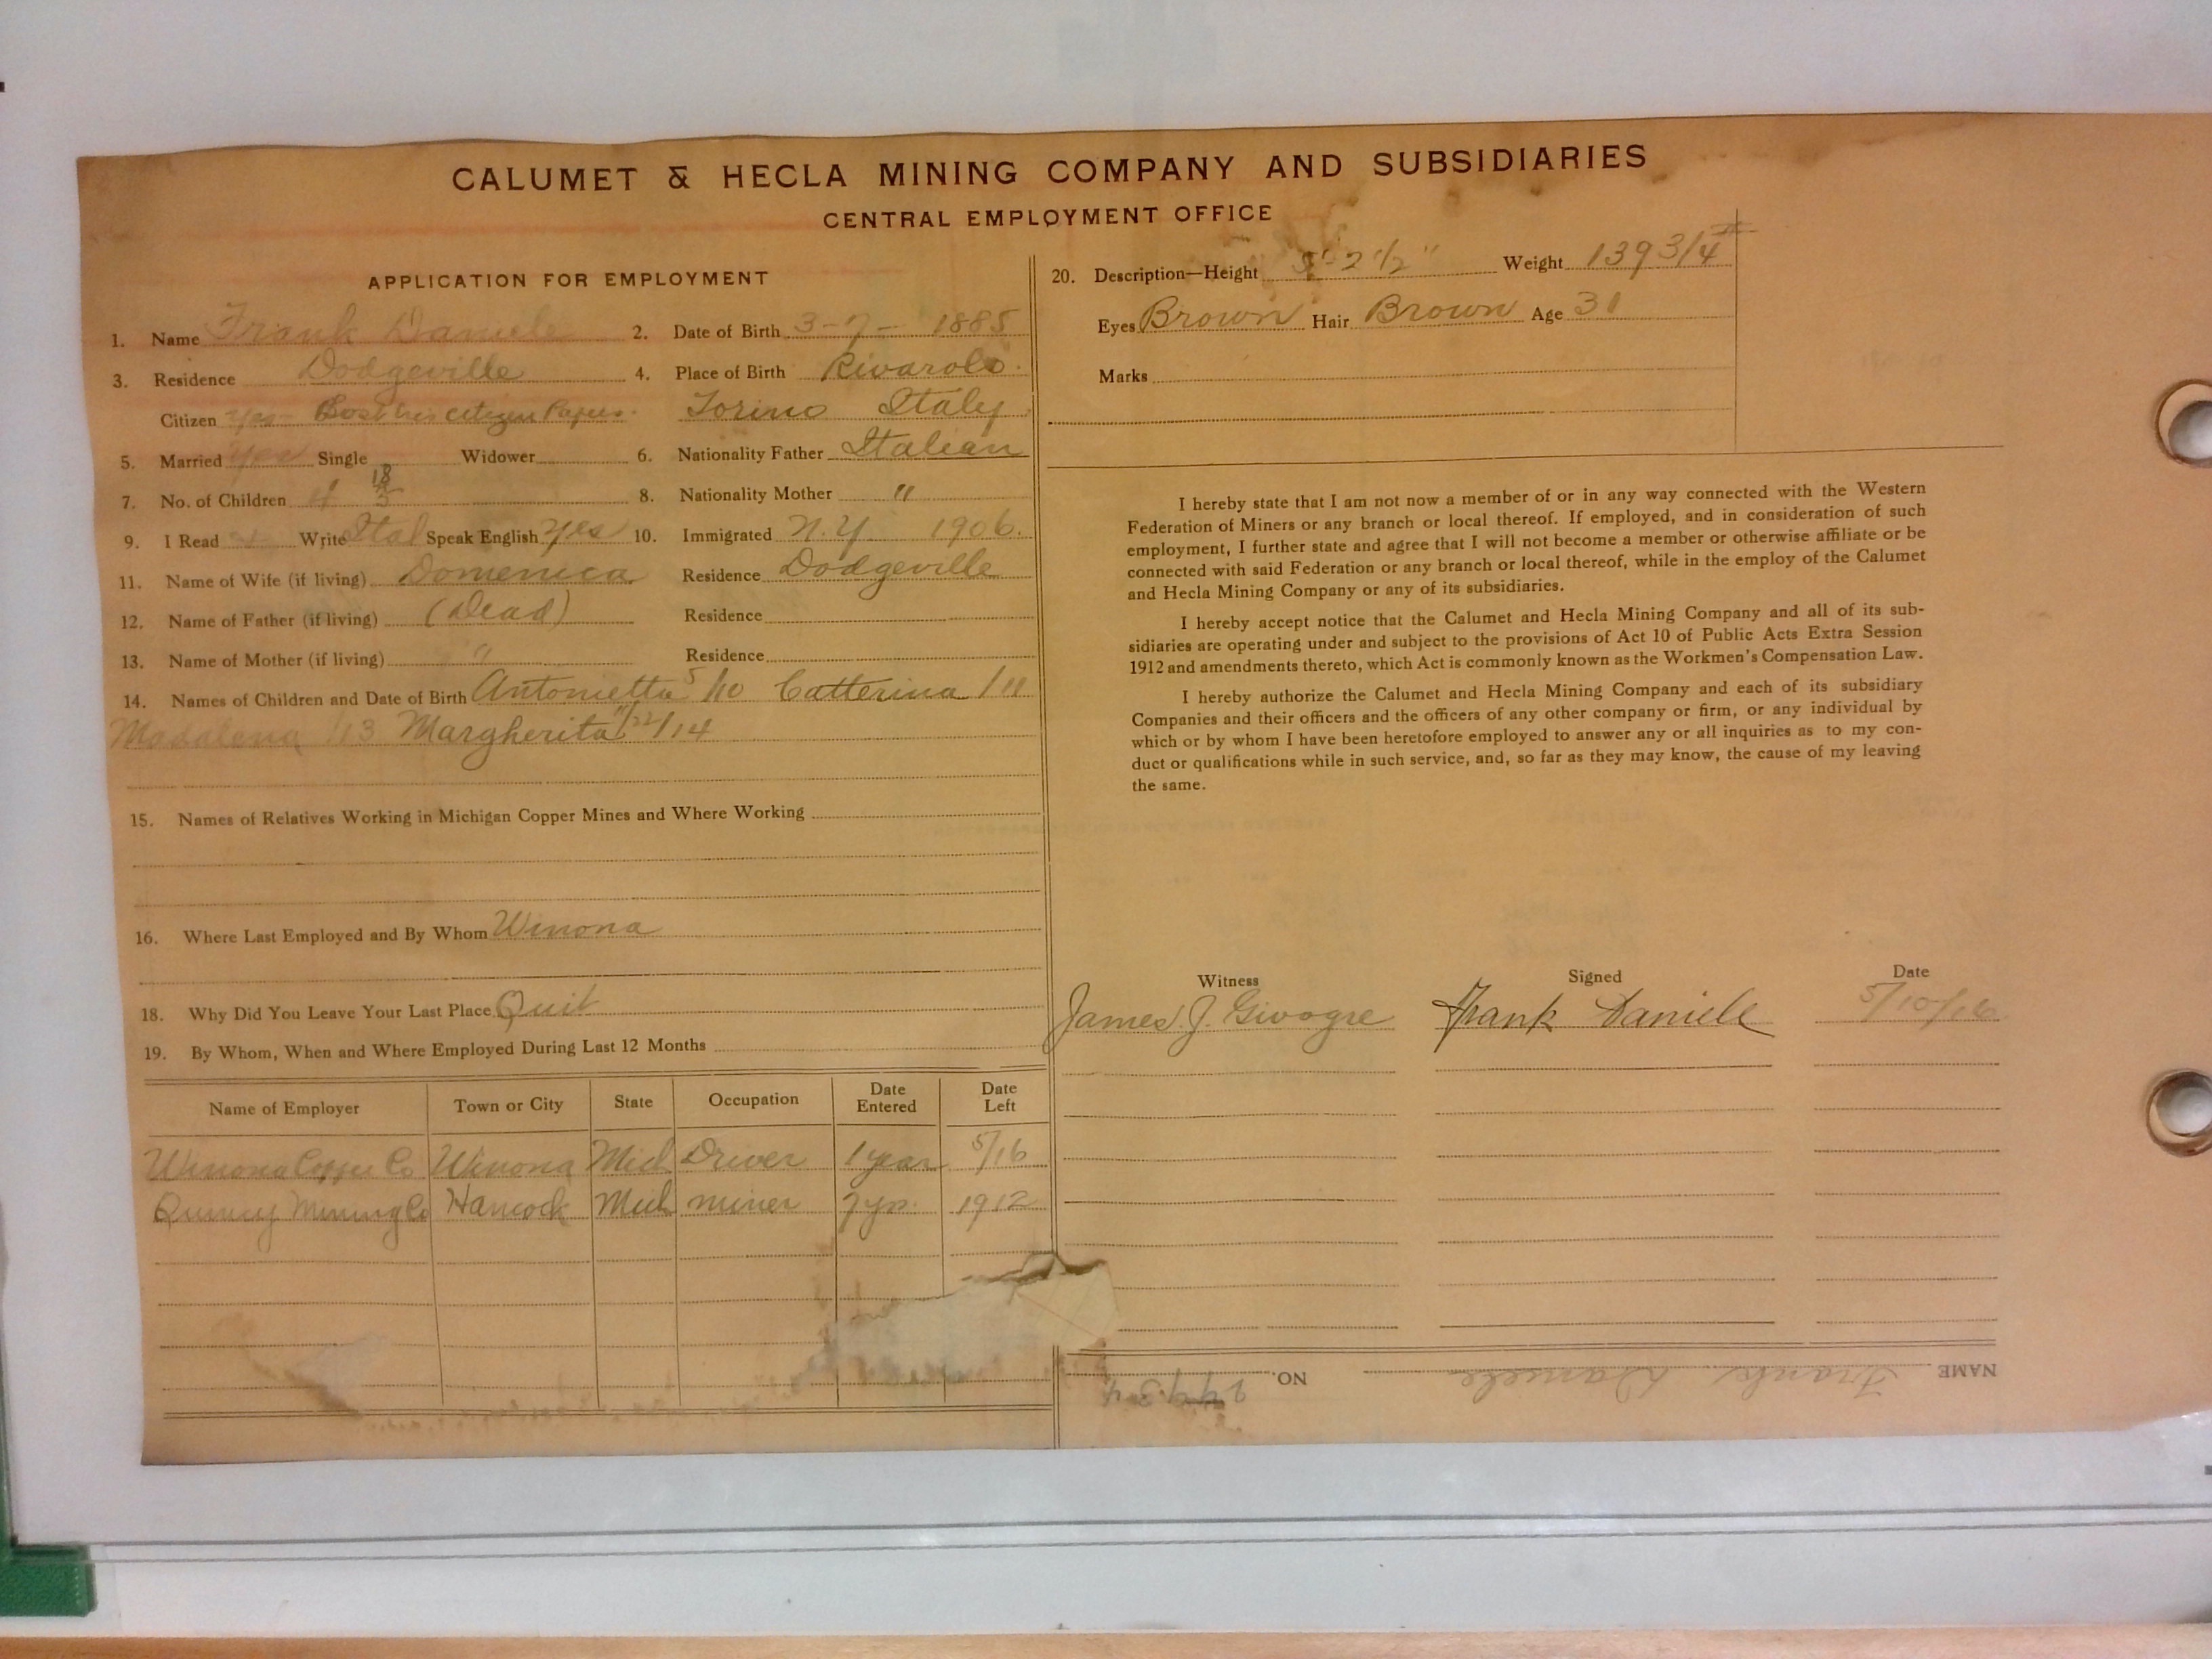 CALUMET & HECLA MINING COMPANY AND SUBSIDIARIES
CENTRAL EMPLOYMENT OFFICE
APPLICATION FOR EMPLOYMENT
1. Name Frank Daniele 2. Date of Birth 3-7- 1885
3. Residence Dodgeville 4. Place of Birth Rivarolo.
Citizen yes- his citizen Papers. Torino Italy
5. Married yes Single Widower 6. Nationality Father Italian
7. No. of Children 4 8. Nationality Mother "
9. I Read Write Ital Speak English yes 10. Immigrated N.Y. 1906.
11. Name of Wife (if living) Domenica Residence Dodgeville
12. Name of Father (if living) (Dead) Residence
13. Name of Mother (if living) " Residence
14. Names of Children and Date of Birth Antonietta 5/10 Catterina /11
Madalena 1/13 Margherita 11/22/14
15. Names of Relatives Working in Michigan Copper Mines and Where Working
16. Where Last Employed and By Whom Winona
18. Why Did You Leave Your Last Place Quit
19. By Whom, When and Where Employed During Last 12 Months
Name of Employer Town or City State Occupation Date Entered Date Left
Winona Copper Co Winona Mich Driver 1 year 5/16
Quincy Mining Co Hancock Mich miner 7 yrs. 1912
20. Description—Height 5' 2 1/2" Weight 139 3/4 #
Eyes Brown Hair Brown Age 31
Marks
I hereby state that I am not now a member of or in any way connected with the Western
Federation of Miners or any branch or local thereof. If employed, and in consideration of such
employment, I further state and agree that I will not become a member or otherwise affiliate or be
connected with said Federation or any branch or local thereof, while in the employ of the Calumet
and Hecla Mining Company or any of its subsidiaries.
I hereby accept notice that the Calumet and Hecla Mining Company and all of its sub-
sidiaries are operating under and subject to the provisions of Act 10 of Public Acts Extra Session
1912 and amendments thereto, which Act is commonly known as the Workmen's Compensation Law.
I hereby authorize the Calumet and Hecla Mining Company and each of its subsidiary
Companies and their officers and the officers of any other company or firm, or any individual by
which or by whom I have been heretofore employed to answer any or all inquiries as to my con-
duct or qualifications while in such service, and, so far as they may know, the cause of my leaving
the same.
Witness Signed Date
James J. Givogre Frank Daniele 5/10/16
NAME Frank Daniele NO.